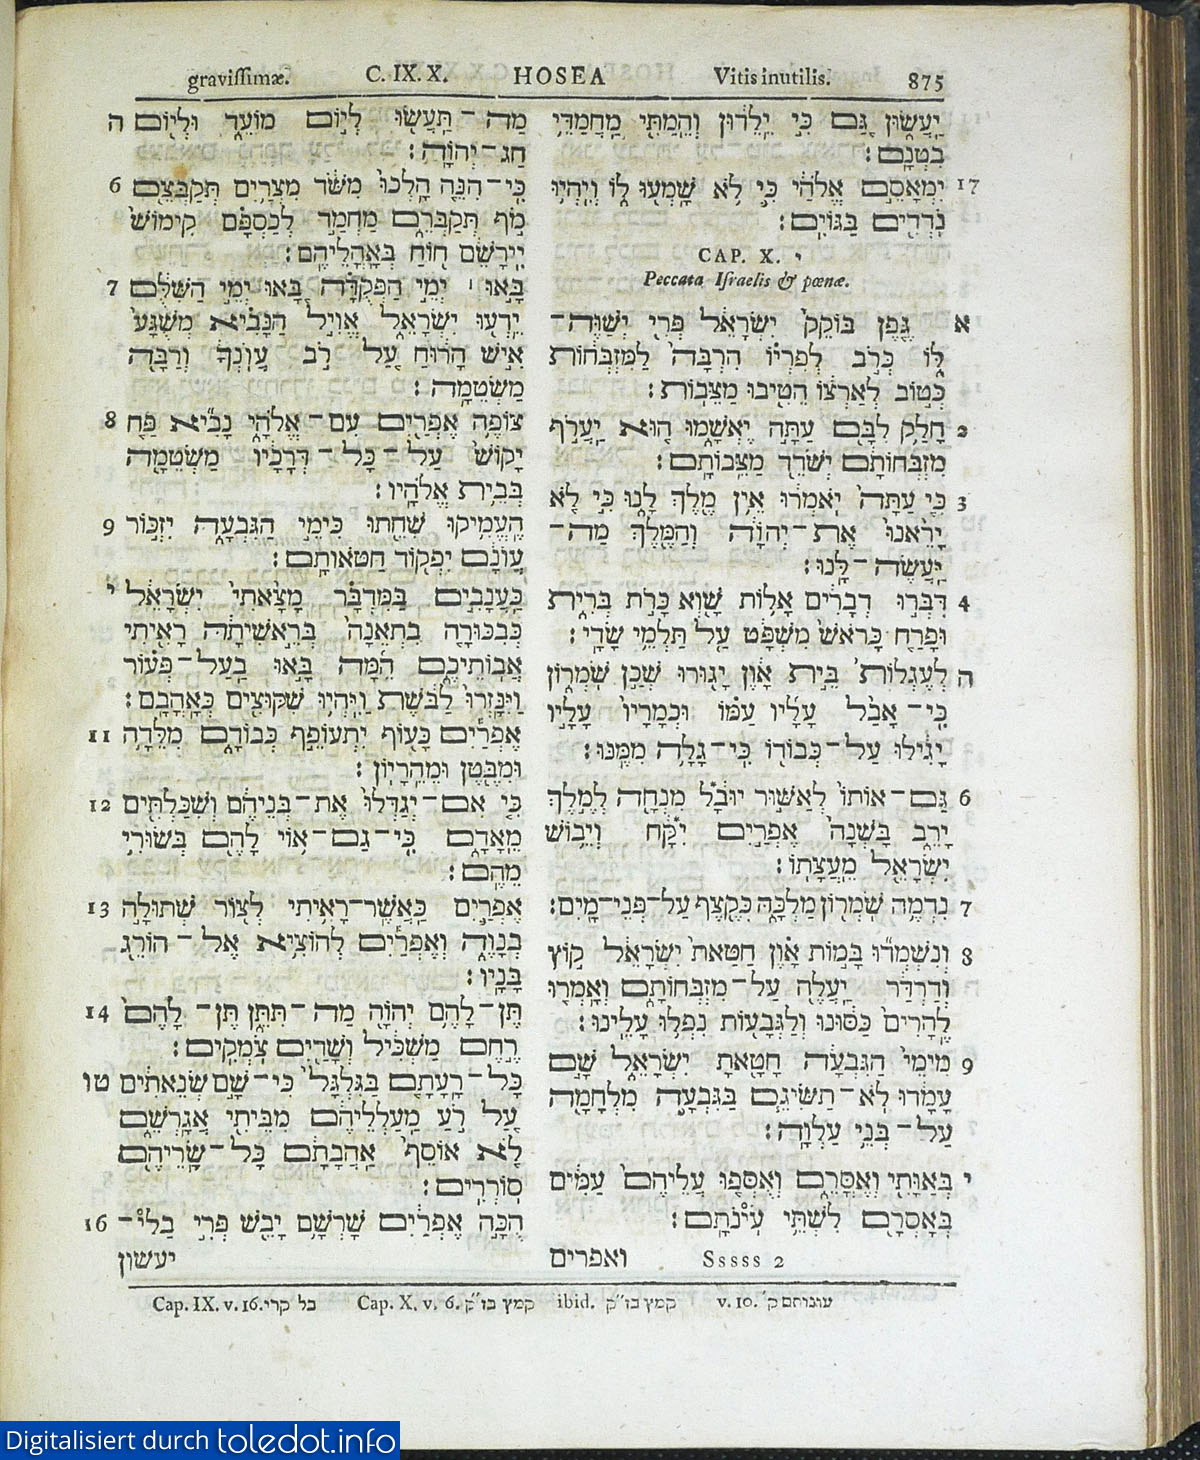 gravissimæ. C. IX. X. HOSEA Vitis inutilis. 875
ה מַה־תַּעֲשׂוּ לְיוֹם מוֹעֵד וּלְיוֹם
חַג־יְהוָה׃
6 כִּי־הִנֵּה הָלְכוּ מִשֹּׁד מִצְרַיִם תְּקַבְּצֵם
מֹף תְּקַבְּרֵם מַחְמַד לְכַסְפָּם קִימוֹשׂ
יִירָשֵׁם חוֹחַ בְּאָהֳלֵיהֶם׃
7 בָּאוּ ׀ יְמֵי הַפְּקֻדָּה בָּאוּ יְמֵי הַשִּׁלֻּם
יֵדְעוּ יִשְׂרָאֵל אֱוִיל הַנָּבִיא מְשֻׁגָּע
אִישׁ הָרוּחַ עַל רֹב עֲוֹנְךָ וְרַבָּה
מַשְׂטֵמָה׃
8 צוֹפֶה אֶפְרַיִם עִם־אֱלֹהָי נָבִיא פַּח
יָקוֹשׁ עַל־כָּל־דְּרָכָיו מַשְׂטֵמָה
בְּבֵית אֱלֹהָיו׃
9 הֶעֱמִיקוּ שִׁחֵתוּ כִּימֵי הַגִּבְעָה יִזְכּוֹר
עֲוֹנָם יִפְקוֹד חַטֹּאותָם׃
י כַּעֲנָבִים בַּמִּדְבָּר מָצָאתִי יִשְׂרָאֵל
כְּבִכּוּרָה בִתְאֵנָה בְּרֵאשִׁיתָהּ רָאִיתִי
אֲבוֹתֵיכֶם הֵמָּה בָּאוּ בַעַל־פְּעוֹר
וַיִּנָּזְרוּ לַבֹּשֶׁת וַיִּהְיוּ שִׁקּוּצִים כְּאָהֳבָם׃
11 אֶפְרַיִם כָּעוֹף יִתְעוֹפֵף כְּבוֹדָם מִלֵּדָה
וּמִבֶּטֶן וּמֵהֵרָיוֹן׃
12 כִּי אִם־יְגַדְּלוּ אֶת־בְּנֵיהֶם וְשִׁכַּלְתִּים
מֵאָדָם כִּי־גַם־אוֹי לָהֶם בְּשׂוּרִי
מֵהֶם׃
13 אֶפְרַיִם כַּאֲשֶׁר־רָאִיתִי לְצוֹר שְׁתוּלָה
בְנָוֶה וְאֶפְרַיִם לְהוֹצִיא אֶל־הוֹרֵג
בָּנָיו׃
14 תֵּן־לָהֶם יְהוָה מַה־תִּתֵּן תֵּן־לָהֶם
רֶחֶם מַשְׁכִּיל וְשָׁדַיִם צֹמְקִים׃
טו כָּל־רָעָתָם בַּגִּלְגָּל כִּי־שָׁם שְׂנֵאתִים
עַל רֹעַ מַעַלְלֵיהֶם מִבֵּיתִי אֲגָרְשֵׁם
לֹא אוֹסֵף אַהֲבָתָם כָּל־שָׂרֵיהֶם
סוֹרְרִים׃
16 הֻכָּה אֶפְרַיִם שָׁרְשָׁם יָבֵשׁ פְּרִי בַלי־
יעשון
יַעֲשׂוּן גַּם כִּי יֵלֵדוּן וְהֵמַתִּי מַחֲמַדֵּי
בִטְנָם׃
17 יִמְאָסֵם אֱלֹהַי כִּי לֹא שָׁמְעוּ לוֹ וְיִהְיוּ
נֹדְדִים בַּגּוֹיִם׃
CAP. X. י
Peccata Israelis & pœnæ.
א גֶּפֶן בּוֹקֵק יִשְׂרָאֵל פְּרִי יְשַׁוֶּה־
לּוֹ כְּרֹב לְפִרְיוֹ הִרְבָּה לַמִּזְבְּחוֹת
כְּטוֹב לְאַרְצוֹ הֵטִיבוּ מַצֵּבוֹת׃
2 חָלַק לִבָּם עַתָּה יֶאְשָׁמוּ הוּא יַעֲרֹף
מִזְבְּחוֹתָם יְשֹׁדֵד מַצֵּבוֹתָם׃
3 כִּי עַתָּה יֹאמְרוּ אֵין מֶלֶךְ לָנוּ כִּי לֹא
יָרֵאנוּ אֶת־יְהוָה וְהַמֶּלֶךְ מַה־
יַּעֲשֶׂה־לָּנוּ׃
4 דִּבְּרוּ דְבָרִים אָלוֹת שָׁוְא כָּרֹת בְּרִית
וּפָרַח כָּרֹאשׁ מִשְׁפָּט עַל תַּלְמֵי שָׂדָי׃
ה לְעֶגְלוֹת בֵּית אָוֶן יָגוּרוּ שְׁכַן שֹׁמְרוֹן
כִּי־אָבַל עָלָיו עַמּוֹ וּכְמָרָיו עָלָיו
יָגִילוּ עַל־כְּבוֹדוֹ כִּי־גָלָה מִמֶּנּוּ׃
6 גַּם־אוֹתוֹ לְאַשּׁוּר יוּבָל מִנְחָה לְמֶלֶךְ
יָרֵב בָּשְׁנָה אֶפְרַיִם יִקָּח וְיֵבוֹשׁ
יִשְׂרָאֵל מֵעֲצָתוֹ׃
7 נִדְמֶה שֹׁמְרוֹן מַלְכָּהּ כְּקֶצֶף עַל־פְּנֵי־מָיִם׃
8 וְנִשְׁמְדוּ בָּמוֹת אָוֶן חַטַּאת יִשְׂרָאֵל קוֹץ
וְדַרְדַּר יַעֲלֶה עַל־מִזְבְּחוֹתָם וְאָמְרוּ
לֶהָרִים כַּסּוּנוּ וְלַגְּבָעוֹת נִפְלוּ עָלֵינוּ׃
9 מִימֵי הַגִּבְעָה חָטָאתָ יִשְׂרָאֵל שָׁם
עָמָדוּ לֹא־תַשִּׂיגֵם בַּגִּבְעָה מִלְחָמָה
עַל־בְּנֵי עַלְוָה׃
י בְּאַוָּתִי וְאֶסֳּרֵם וְאֻסְּפוּ עֲלֵיהֶם עַמִּים
בְּאָסְרָם לִשְׁתֵּי עֹינֹתָם׃
ואפרים Sssss 2
Cap. IX. v. 16. בל קרי Cap. X. v. 6. קמץ בז״ק ibid. קמץ בז״ק v. 10. עונותם ק׳
Digitalisiert durch toledot.info